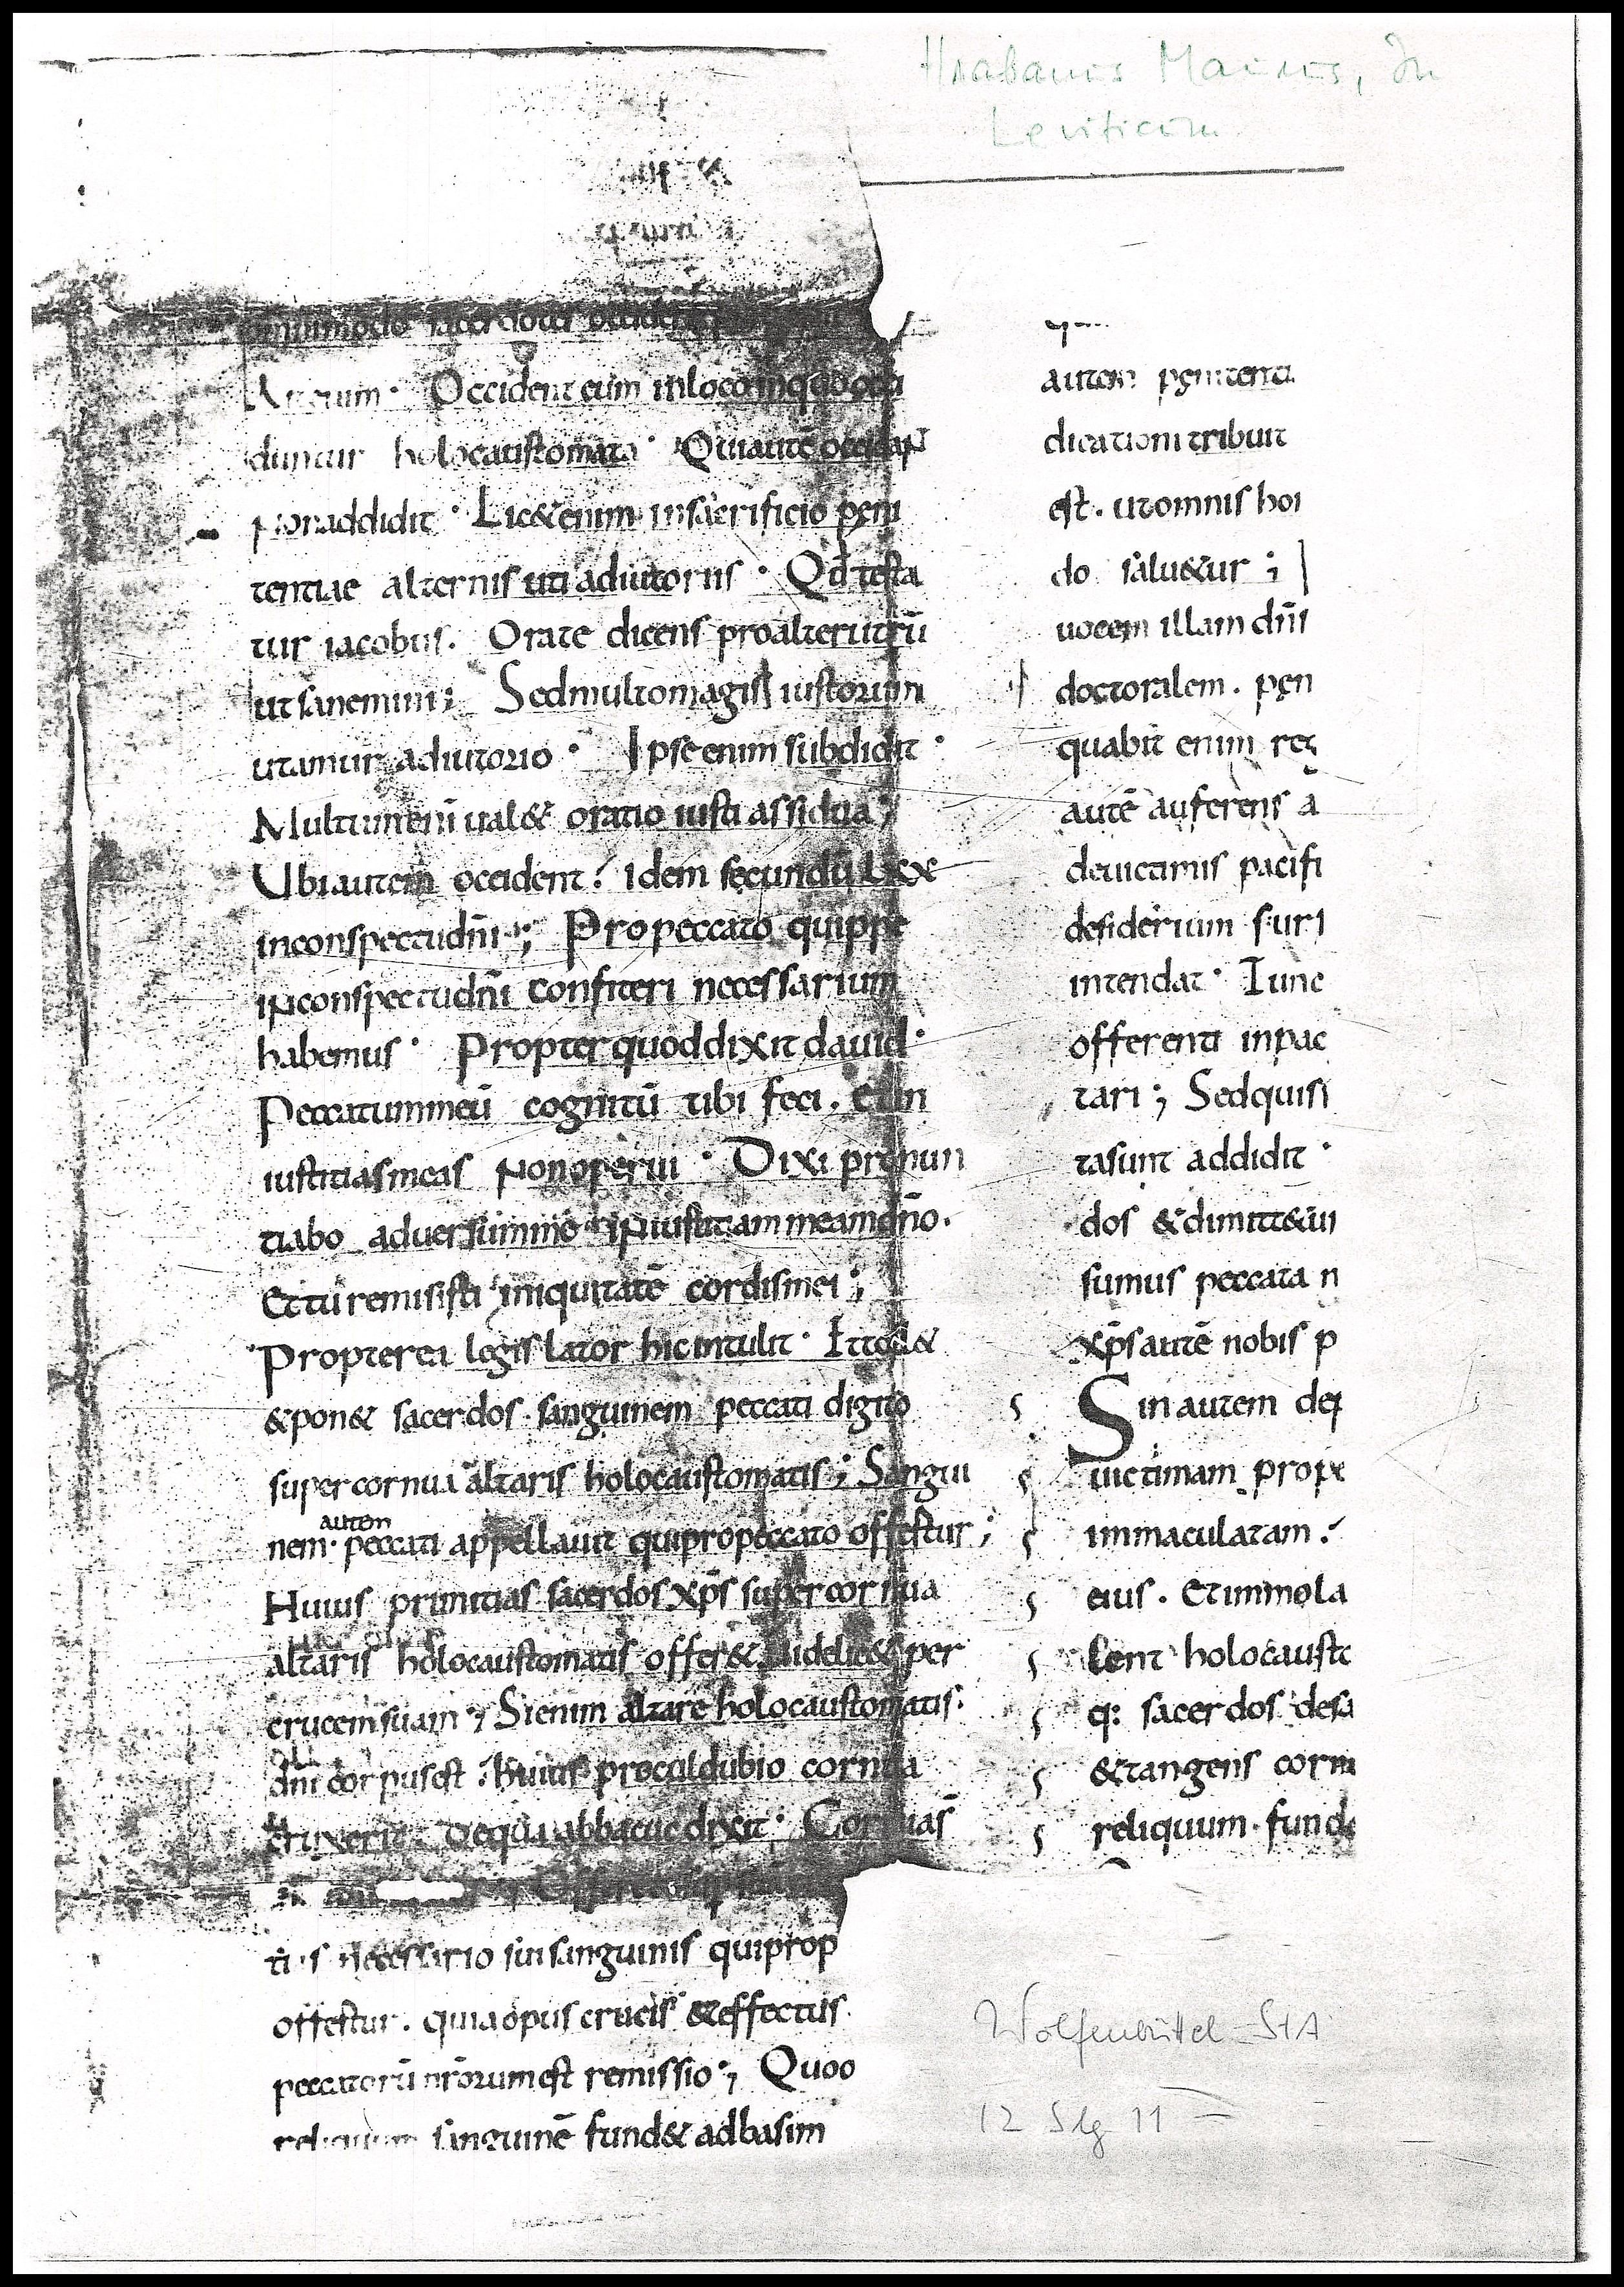 Hrabanus Maurus, In
Leviticum
sacerdotes
Occident eum inloco inquo occi
duntur holocaustomata · Quiautē occidaN
Nonaddidit · Lic&enim insacrificio pęni
tentiae alternis uti adiutoriis · Qđ testa
tur iacobus. Orate dicens proalterutrū
ut sanemini; Sedmultomagis iustorum
utamur adiutorio · Ipse enim subdidit ·
Multumeni ual& oratio iusti assidua;
Ubiautem occident? Idem secundū
inconspectudn̄i; Propeccato quippe
iNconspectudn̄i confiteri necessarium
habemus · Propter quoddixit dauid ·
Peccatummeū cognitū tibi feci. Etin
iustitiasmeas Nonoperui · Dixi pronun
tiabo aduersumme iNiustitiam meamdn̄o.
Ettu remisisti iniquitatē cordismei;
Propterea legis lator hic intulit · Ettoll&
&pon& sacerdos sanguinem peccati digito
supercornua altaris holocaustomatis; Sangui
autem
nem · peccati appellauit quipropeccato offertur;
Huius primitias sacerdos xp̄s super cornua
altaris holocaustomatis offer& uidelic& per
crucemsuam; Sienim altare holocaustomatis
dn̄i corpusest · huius proculdubio cornua
crux erit. dequa abbacuc dixit · Cornuas̄
necessario sui sanguinis quiprop
offertur. quiaopus crucis &effectus
peccatorū nr̄orumest remissio; Quod
reliquum sanguinē fund& adbasim
autem pęnitenti
dicationi tribuit
est. utomnis hoi
do salu&ur;
uocem illam dn̄i
doctoralem. pęn
quabit enim reg
autē auferens a
deuictimis pacifi
desiderium sur
intendat · Tunc
offerenti inpac
tari; Sedquis
tasunt addidit ·
dos &dimitt&ur
sumus peccata n
xp̄s autē nobis p
Sin autem dep
uictimam prope
immaculatam.
eius. Etimmola
lent holocausto
q: sacerdos desa
&tangens cornu
reliquum fundo
Wolfenbüttel StA
12 Slg 11